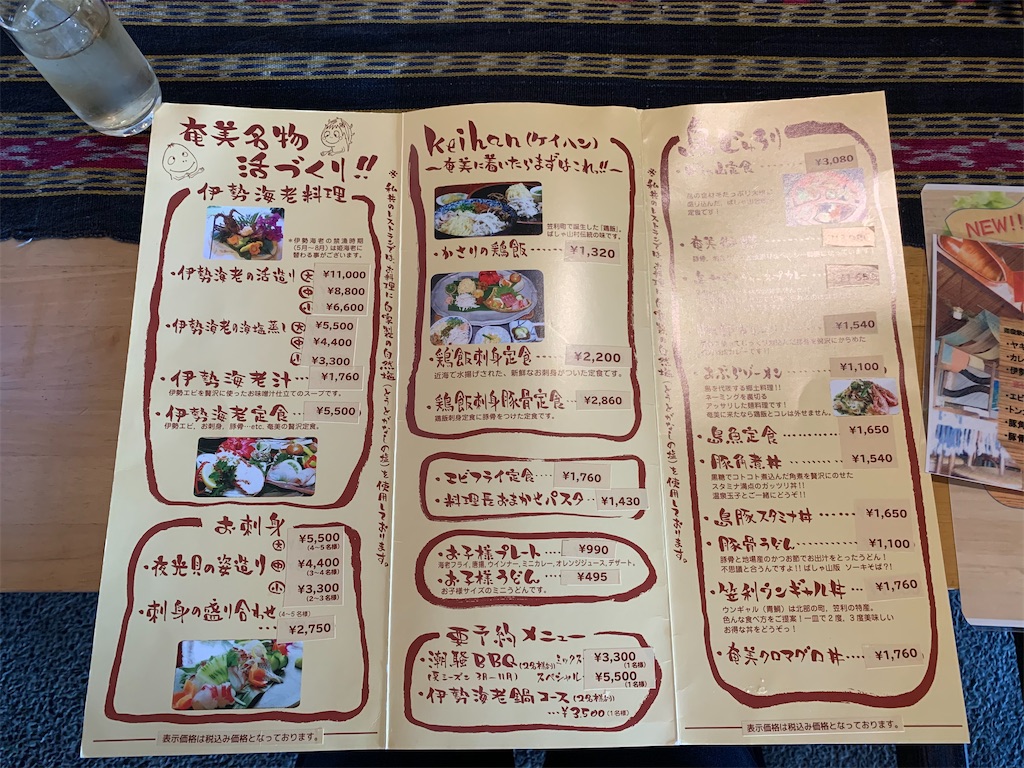 奄美名物
活づくり!!
伊勢海老料理
※伊勢海老の禁漁時期
(5月〜8月)は姫海老に
替わる事がございます。
・伊勢海老の活造り 大 ¥11,000
中 ¥8,800
小 ¥6,600
・伊勢海老の海塩蒸し 大 ¥5,500
中 ¥4,400
小 ¥3,300
・伊勢海老汁 ¥1,760
伊勢エビを贅沢に使ったお味噌汁仕立てのスープです。
・伊勢海老定食 ¥5,500
伊勢エビ、お刺身、豚骨…etc. 奄美の贅沢定食。
お刺身
・夜光貝の姿造り 大 ¥5,500
(4〜5名様)
中 ¥4,400
(3〜4名様)
小 ¥3,300
(2〜3名様)
・刺身の盛り合わせ (4〜5名様)
… ¥2,750
表示価格は税込み価格となっております。
※私共のレストランでは、お料理に自家製の自然塩(とうとがなしの塩)を使用しております。
keihan(ケイハン)
〜奄美に着いたらまずはこれ!!〜
笠利町で誕生した「鶏飯」
ばしゃ山村伝統の味です。
・かさりの鶏飯 …… ¥1,320
・鶏飯刺身定食 …… ¥2,200
近海で水揚げされた、新鮮なお刺身がついた定食です。
・鶏飯刺身豚骨定食 … ¥2,860
鶏飯刺身定食に豚骨をつけた定食です。
・エビフライ定食 …… ¥1,760
・料理長おまかせパスタ … ¥1,430
・お子様プレート …… ¥990
海老フライ、唐揚、ウインナー、ミニカレー、オレンジジュース、デザート。
・お子様うどん …… ¥495
お子様サイズのミニうどんです。
要予約メニュー
・潮騒BBQ(2名様より) ミックス ¥3,300
(1名様)
(夏シーズン 3月〜11月) スペシャル ¥5,500
(1名様)
・伊勢海老鍋コース(2名様より)
…¥3,500(1名様)
※私共のレストランでは、お料理に自家製の自然塩(とうとがなしの塩)を使用しております。
¥3,080
定食です!
¥1,540
¥1,100
島を代表する郷土料理!!
ネーミングを裏切る
アッサリした麺料理です!
奄美に来たなら鶏飯とコレは外せません。
・島魚定食 ………… ¥1,650
・豚角煮丼 ………… ¥1,540
黒糖でコトコト煮込んだ角煮を贅沢にのせた
スタミナ満点のガッツリ丼!!
温泉玉子とご一緒にどうぞ!!
・島豚スタミナ丼 …… ¥1,650
・豚骨うどん ………… ¥1,100
豚骨と地場産のかつお節でお出汁をとったうどん!
不思議と合うんですよ!ばしゃ山版 ソーキそば?!
・笠利ウンギャル丼 … ¥1,760
ウンギャル(青鯛)は北部の町、笠利の特産。
色んな食べ方をご提案!一皿で2度、3度美味しい
お得な丼をどうぞっ!
・奄美クロマグロ丼 …… ¥1,760
表示価格は税込み価格となっております。
NEW!!